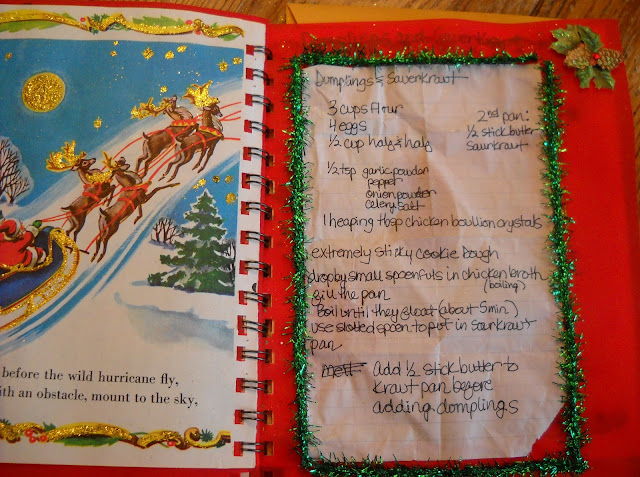 before the wild hurricane fly,
with an obstacle, mount to the sky,
Dumplings & Sauerkraut
3 cups flour
4 eggs
1/2 cup half & half
2nd pan:
1/2 stick butter
saurkraut
1/2 tsp garlic powder
pepper
onion powder
celery salt
1 heaping tbsp chicken boullion crystals
extremely sticky cookie dough
drop by small spoonfuls in chicken broth
(boiling)
fill the pan
Boil until they float (about 5min)
use slotted spoon to put in saurkraut
pan
add 1/2 stick butter to
kraut pan before
adding dumplings